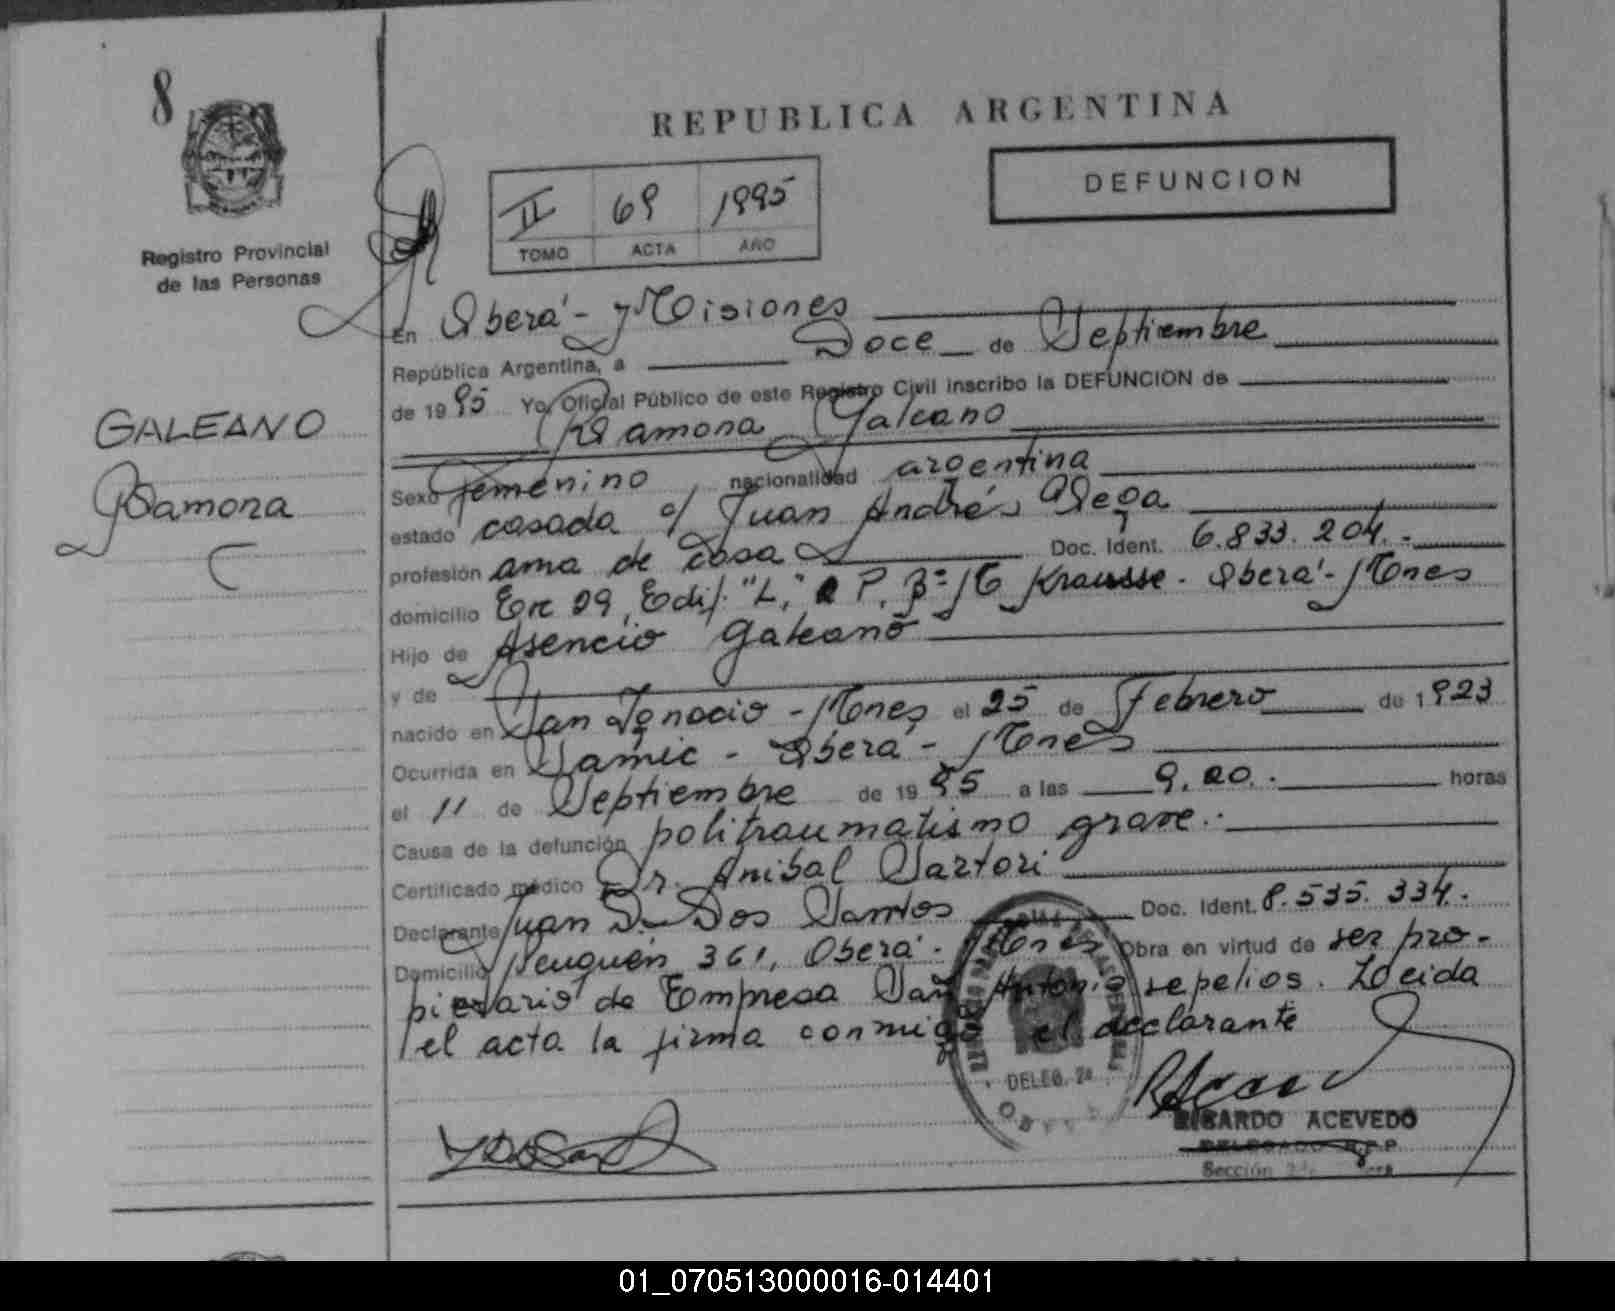 8
REPUBLICA ARGENTINA
DEFUNCION
II 69 1995
TOMO ACTA AÑO
Registro Provincial
de las Personas
GALEANO
Ramona
En Oberá - Misiones
República Argentina, a Doce de Septiembre
de 1995 Yo, Oficial Público de este Registro Civil inscribo la DEFUNCION de
Ramona Galeano
Sexo femenino nacionalidad argentina
estado casada c/ Juan Andrés Vega
profesión ama de casa Doc. Ident. 6.833.204.-
domicilio Esc 29, Edif. "L", P. B= Krausse - Oberá - Mnes
Hijo de Asencio Galeano
y de
nacido en San Ignacio - Mnes el 25 de Febrero de 1923
Ocurrida en Samic - Oberá - Mnes
el 11 de Septiembre de 1995 a las 9,20.- horas
Causa de la defunción politraumatismo grave.-
Certificado médico Dr. Anibal Sartori
Declarante Juan D. Dos Santos Doc. Ident. 8.535.334.-
Domicilio Neuquén 361, Oberá - Mnes Obra en virtud de ser pro-
pietario de Empresa San Antonio sepelios. Leida
el acta la firma conmigo el declarante
DELEG. 2a
RICARDO ACEVEDO
DELEGADO R.P.P
Sección
01_070513000016-014401